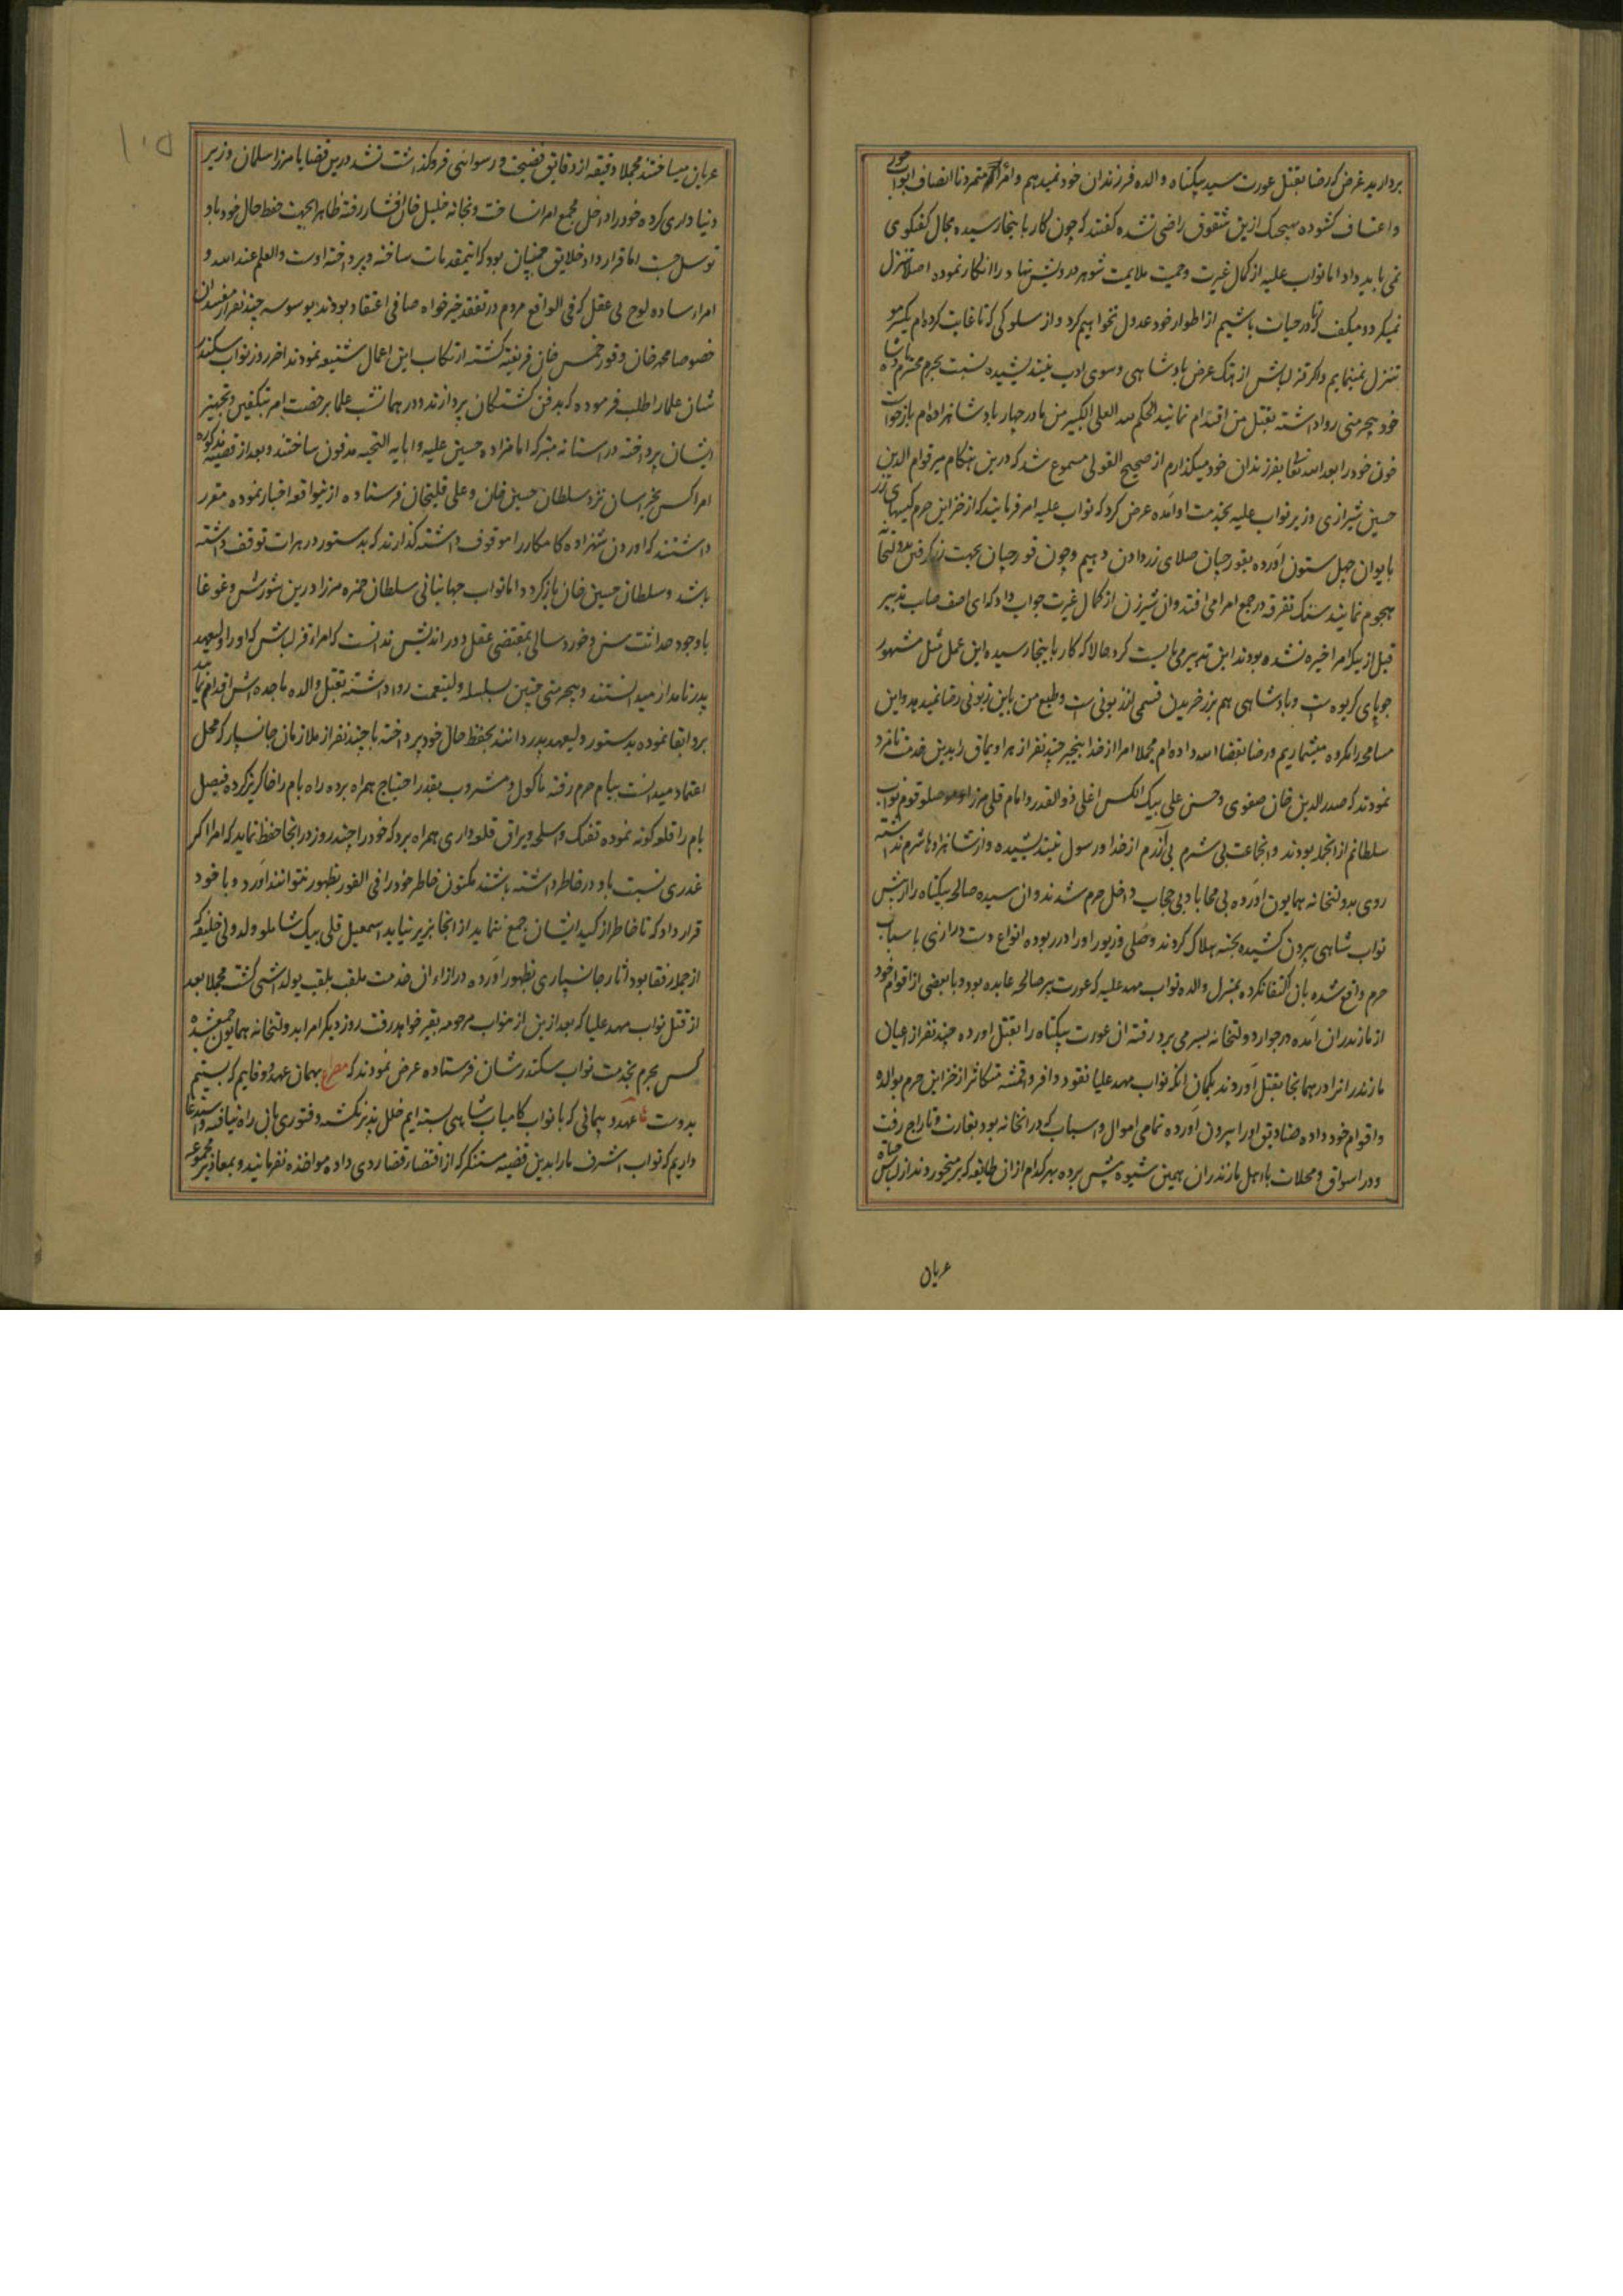 بردارید غرض که رضا بقتل عورت سیده بیگناه والده فرزندان خود نمیدهم و امرا که متمرد ناانصاف ابواب جور
و اعتساف گشوده هیچیک ازین شقوق راضی نشده گفتند که چون کار باینجا رسیده مجال گفتگوی
نمی باید داد اما نواب علیه از کمال غیرت و حمیت ملایمت شوهر درویش نهاد را انکار نموده اصلا تنزل
نمیکرد و میگفت که تا در حیات باشیم از اطوار خود عدول نخواهیم کرد و از سلوکی که تا غایت کرده ام یکسر مو
تنزل نمینمایم و اگر قزلباش از هتک عرض پادشاهی و سوی ادب نیندیشیده نسبت بحرم محترم پادشاه
خود بیحرمتی روا داشته بقتل من اقدام نمایند الحکم لله العلی الکبیر من مادر چهار پادشاهزاده ام بازخواست
خون خود را بعد الله تعالی بفرزندان خود میگذارم از صحیح القولی مسموع شد که درین هنگام میر قوام الدین
حسین شیرازی وزیر نواب علیه بخدمت او آمده عرض کرد که نواب علیه امر فرمایند که از خزاین حرم کیسهای زر
بایوان چهل ستون آورده بقورچیان صلای زر دادن دهیم و چون قورچیان بجهت زر گرفتن بدولتخانه
هجوم نمایند سنگ تفرقه در جمع امرا می افتد و آن شیرزن از کمال غیرت جواب داد که ای آصف صاحب تدبیر
قبل ازینکه امرا خیره نشده بودند این تدبیر می بایست کرد حالا که کار باینجا رسیده این عمل مثل مشهور
جو پای کریوه است و پادشاهی هم بزر خریدن قسمی از زبونی است و طبع من باین زبونی رضا نمیدهد و این
مسامحه را مکروه میشماریم و رضا بقضا الله داده ام مجملا امرا از خدا بیخبر چند نفر از هر اویماق را بدین خدمت نامزد
نمودند که صدر الدین خان صفوی و حسن علی بیک الکس اغلی ذوالقدر و امام قلی میرزا موصلو قوم نواب
سلطانم از انجمله بودند و انجماعت بی شرم بی آزرم از خدا و رسول نیندیشیده و از شاهزادها شرم نداشته
روی بدولتخانه همایون آورده بی محابا و بی حجاب داخل حرم شدند و آن سیده صالحه بیگناه را از پیش
نواب شاهی بیرون کشیده بخبه هلاک کردند و حلی و زیور او را در ربوده انواع دست درازی با سباب
حرم واقع شده بآن اکتفا نکرده بمنزل والده نواب مهد علیه که عورت پیر صالحه عابده بود و با بعضی از اقوام خود
از مازندران آمده در جوار دولتخانه بسر می برد رفته آن عورت بیگناه را بقتل آورده چند نفر از اعیان
مازندرانرا در همانجا بقتل آوردند بگمان آنکه نواب مهد علیا نقود وافر و اقمشه متکاثر از خزاین حرم بوالده
و اقوام خود داده صنادیق او را بیرون آورده تمامی اموال و اسباب که در انخانه بود بغارت و تاراج رفت
و در اسواق و محلات با اهل مازندران همین شیوه پیش برده بهر کدام از ان طایفه که برمیخوردند از لباس حیات
عریان
۱۰۵
عریان میساختند مجملا دقیقه از دقایق فضیحت و رسوائی فروگذاشت نشد درین قضایا میرزا سلمان وزیر
دنیاداری کرده خود را داخل مجمع امرا نساخت و بخانه خلیل خان افشار رفته ظاهرا بجهت حفظ حال خود باو
توسل جست اما قرار داد خلایق چنان بود که اینمقدمات ساخته و پرداخته اوست والعلم عند الله و
امراء ساده لوح بی عقل که فی الواقع مردم در تفقد خیرخواه صافی اعتقاد بودند بوسوسه چند نفر از مفسدان
خصوصا محمد خان و قورخمس خان فریفته گشته ارتکاب این اعمال شنیعه نمودند آخر روز نواب سکندر
شان علما را طلب فرموده که بدفن گشتگان پردازند و در همان شب علما برخصت امر بتکفین و تجهیز
ایشان پرداخته در آستانه متبرکه امامزاده حسین علیه و ابایه التحیه مدفون ساختند و بعد از قضیه مذکوره
امرا کس بخراسان نزد سلطان حسین خان و علی قلیخان فرستاده از ینواقعه اخبار نموده مقرر
داشتند که آوردن شهزاده کامکار را موقوف داشته گذارند که بدستور در هرات توقف داشته
باشد و سلطان حسین خان بازگردد اما نواب جهانبانی سلطان حمزه میرزا درین شورش و غوغا
با وجود حداثت سن و خوردسالی بمقتضی عقل دوراندیش ندانست که امراء قزلباش که او را ولیعهد
پدر نامدار میدانستند و بیحرمتی چنین بسلسله ولینعمت روا داشته بقتل والده ماجده اش اقدام نمایند
برو ابقا نموده بدستور ولیعهد پدر دانند بحفظ حال خود پرداخته با چند نفر از ملازمان جانسپار که محل
اعتماد میدانست ببام حرم رفته ماکول و مشروب بقدر احتیاج همراه برده راه بام را خاکریز کرده فیصل
بام را قلعه گونه نموده تفنگ و اسلحه و یراق قلعه داری همراه برد که خود را چند روز در انجا حفظ نماید که امرا اگر
غدری نسبت باو در خاطر داشته باشند مکنون خاطر خود را فی الفور بظهور نتوانند آورد و با خود
قرار داد که تا خاطر از کید ایشان جمع ننماید از انجا بزیر نیاید اسمعیل قلی بیک شاملو ولد ولی خلیفه که
از جمله رفقا بود آثار جانسپاری بظهور آورده در ازاء ان خدمت ملقب بلقب یولداشی گشت مجملا بعد
از قتل نواب مهد علیا که بعد ازین از نواب مرحومه تعبیر خواهد رفت روز دیگر امرا بدولتخانه همایون جمع شده
کس بحرم بخدمت نواب سکندر شان فرستاده عرض نمودند که مصرع بهمان عهد و وفایم که بستیم
بدوست عهد و پیمانی که با نواب کامیاب شاهی بسته ایم خلل پذیر نگشته و فتوری بان راه نیافته و استدعا
داریم که نواب اشرف ما را بدین قضیه مستنکر که از اقتضاء قضا روی داده مواخذه نفرمایند و بمعاذیر مجموعه